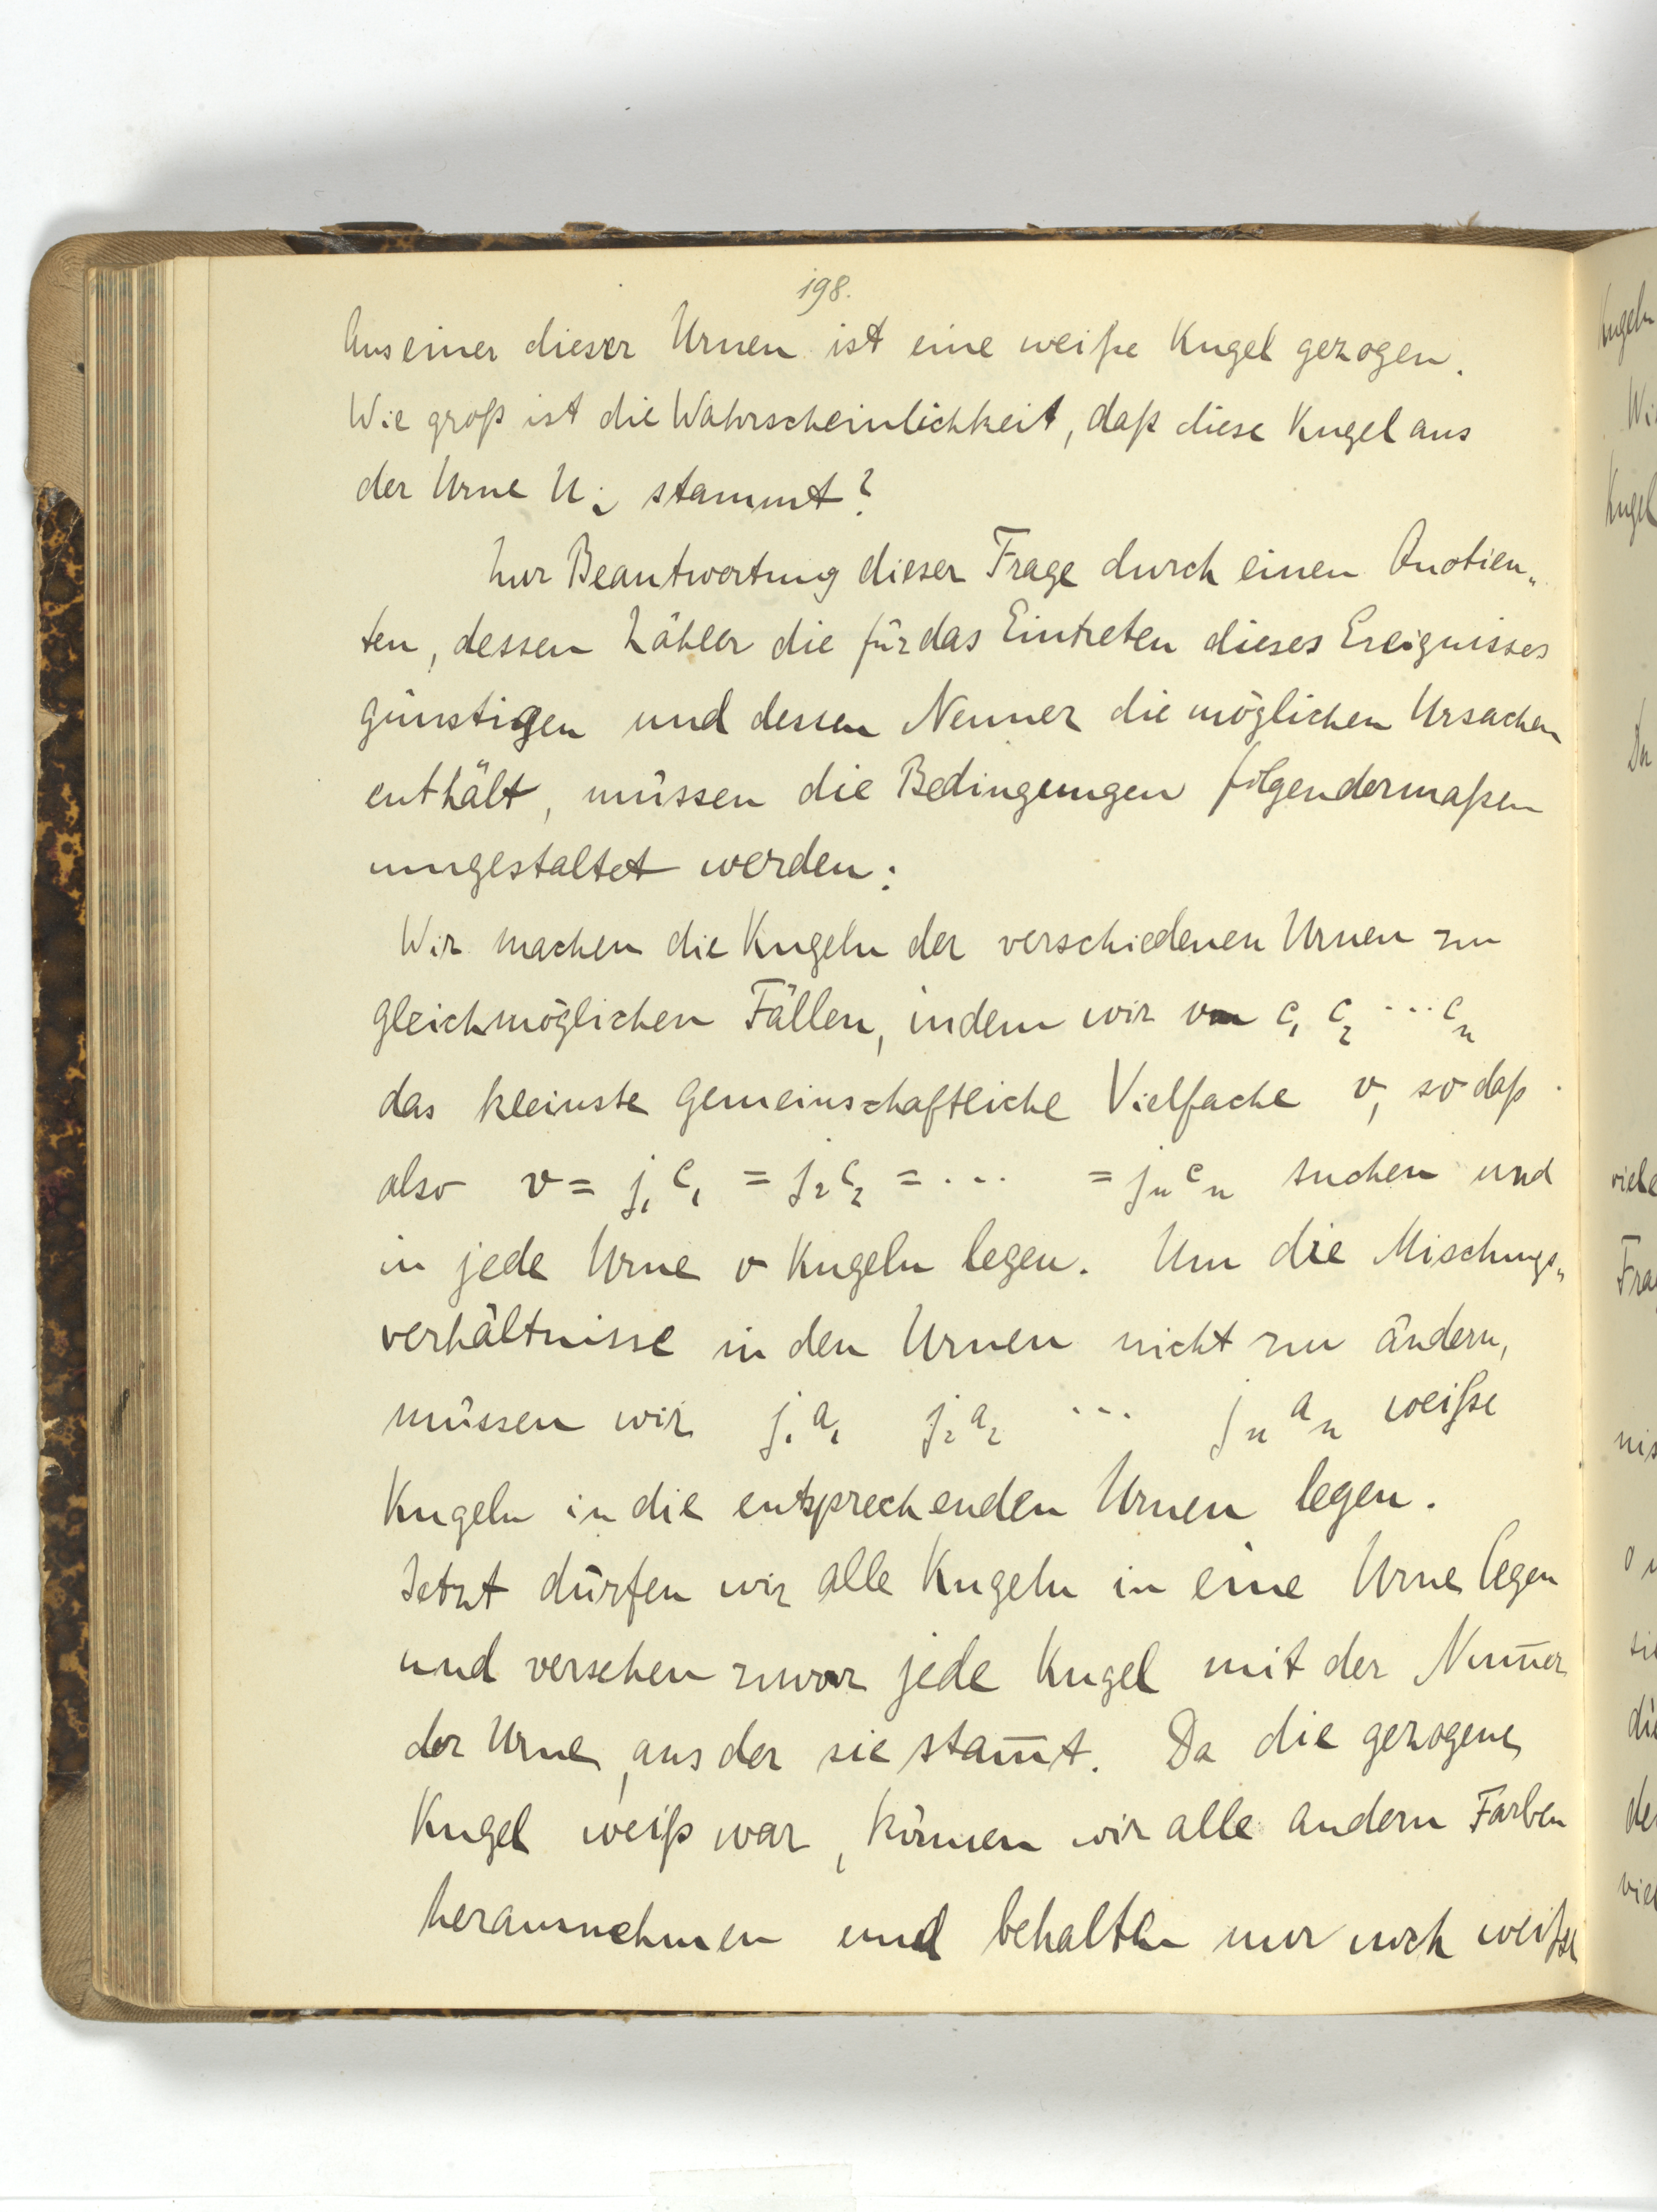 198.
Aus einer dieser Urnen ist eine weiße Kugel gezogen.
Wie groß ist die Wahrscheinlichkeit, daß diese Kugel aus
der Urne U_i stammt?
Zur Beantwortung dieser Frage durch einen Quotien„
ten, dessen Zähler die für das Eintreten dieses Ereignisses
günstigen und dessen Nenner die möglichen Ursachen
enthält, müssen die Bedingungen folgendermaßen
umgestaltet werden:
Wir machen die Kugeln der verschiedenen Urnen zu
gleichmöglichen Fällen, indem wir von c₁ c₂ ... cₙ
das kleinste gemeinschaftliche Vielfache v, so daß
also v = j₁c₁ = j₂c₂ = ... = jₙcₙ suchen und
in jede Urne v Kugeln legen. Um die Mischungs„
verhältnisse in den Urnen nicht zu ändern,
müssen wir j₁a₁ j₂a₂ ... jₙaₙ weiße
Kugeln in die entsprechenden Urnen legen.
Jetzt dürfen wir alle Kugeln in eine Urne legen
und versehen zuvor jede Kugel mit der Num̅er
der Urne, aus der sie stam̅t. Da die gezogene
Kugel weiß war, können wir alle andern Farben
herausnehmen und behalten nur noch weiße